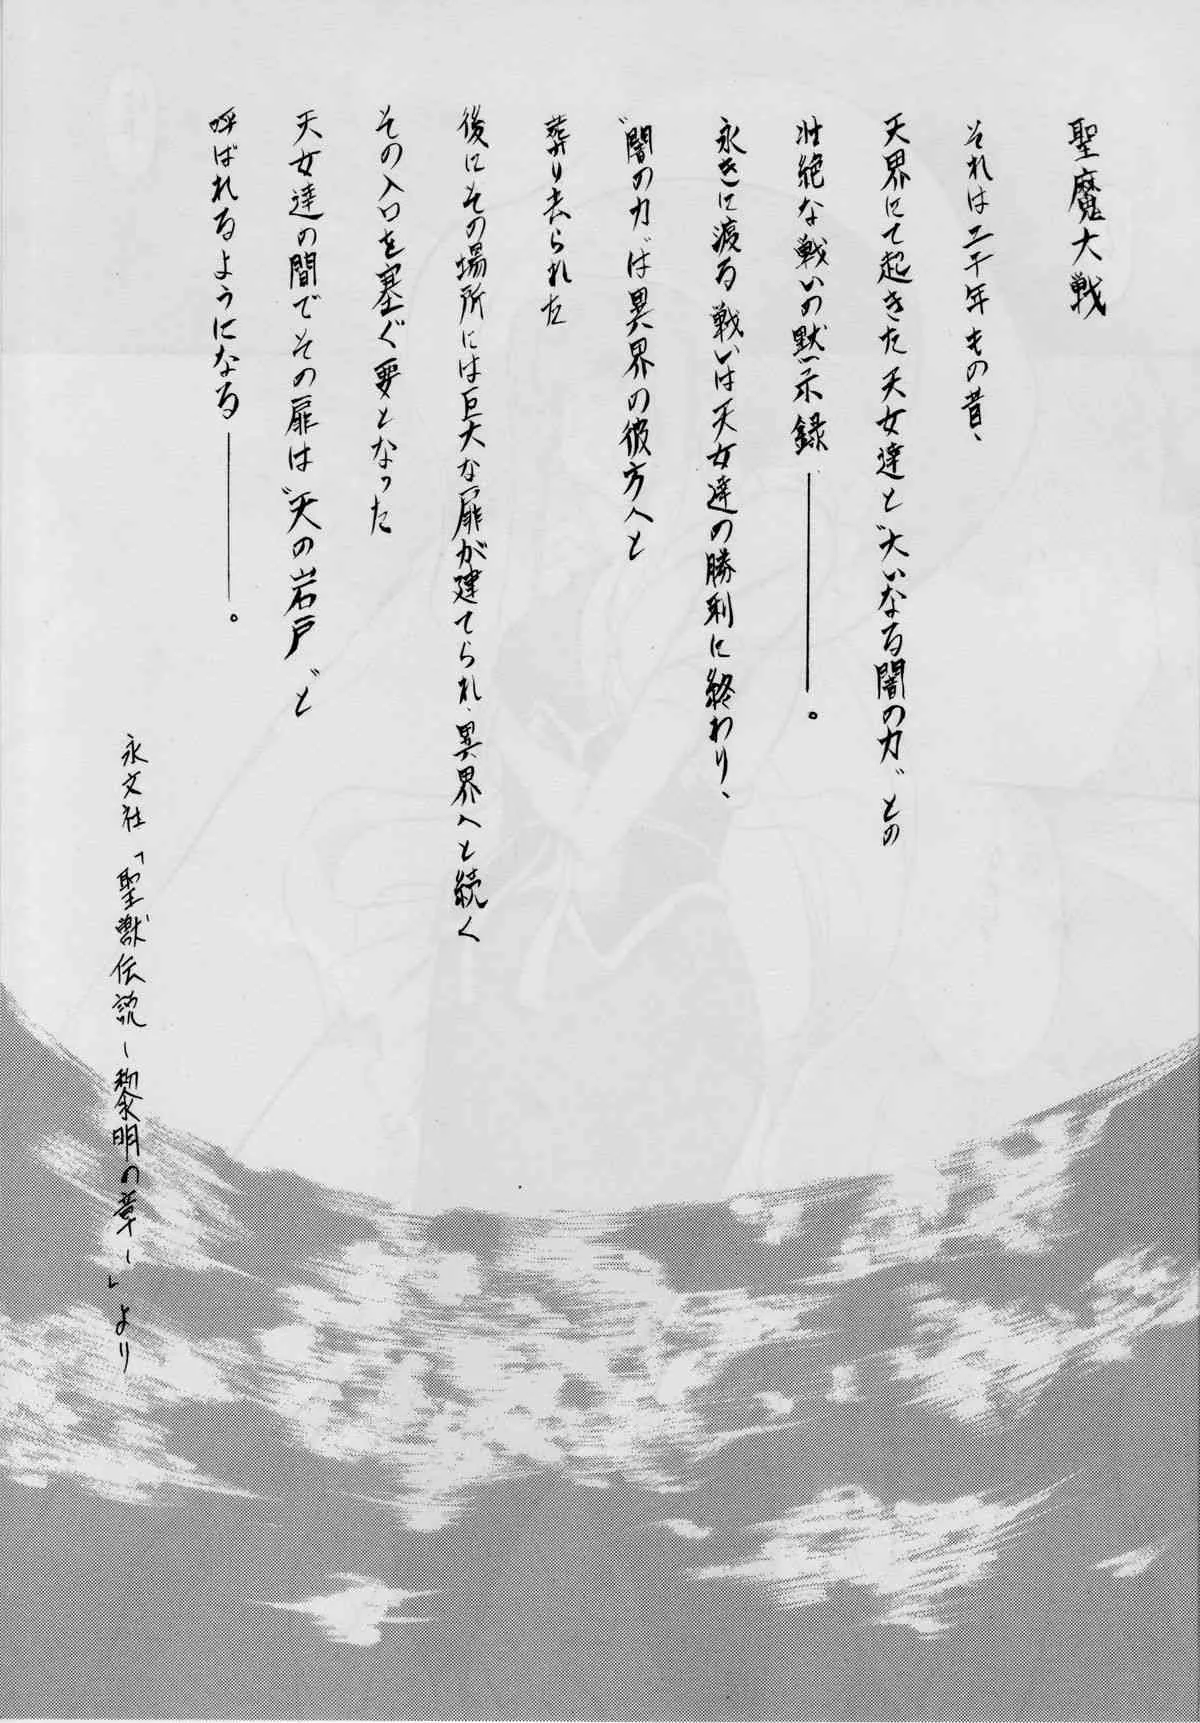 聖魔大戦
それは二千年もの昔、
天界にて起きた天女達と〝大いなる闇の力〟との
壮絶な戦いの黙示録———。
永きに渡る戦いは天女達の勝利に終わり、
〝闇の力〟は異界の彼方へと
葬り去られた
後にその場所には巨大な扉が建てられ、異界へと続く
その入口を塞ぐ要となった
天女達の間でその扉は〝天の岩戸〟と
呼ばれるようになる———。
永文社「聖獣伝説-黎明の章-」より